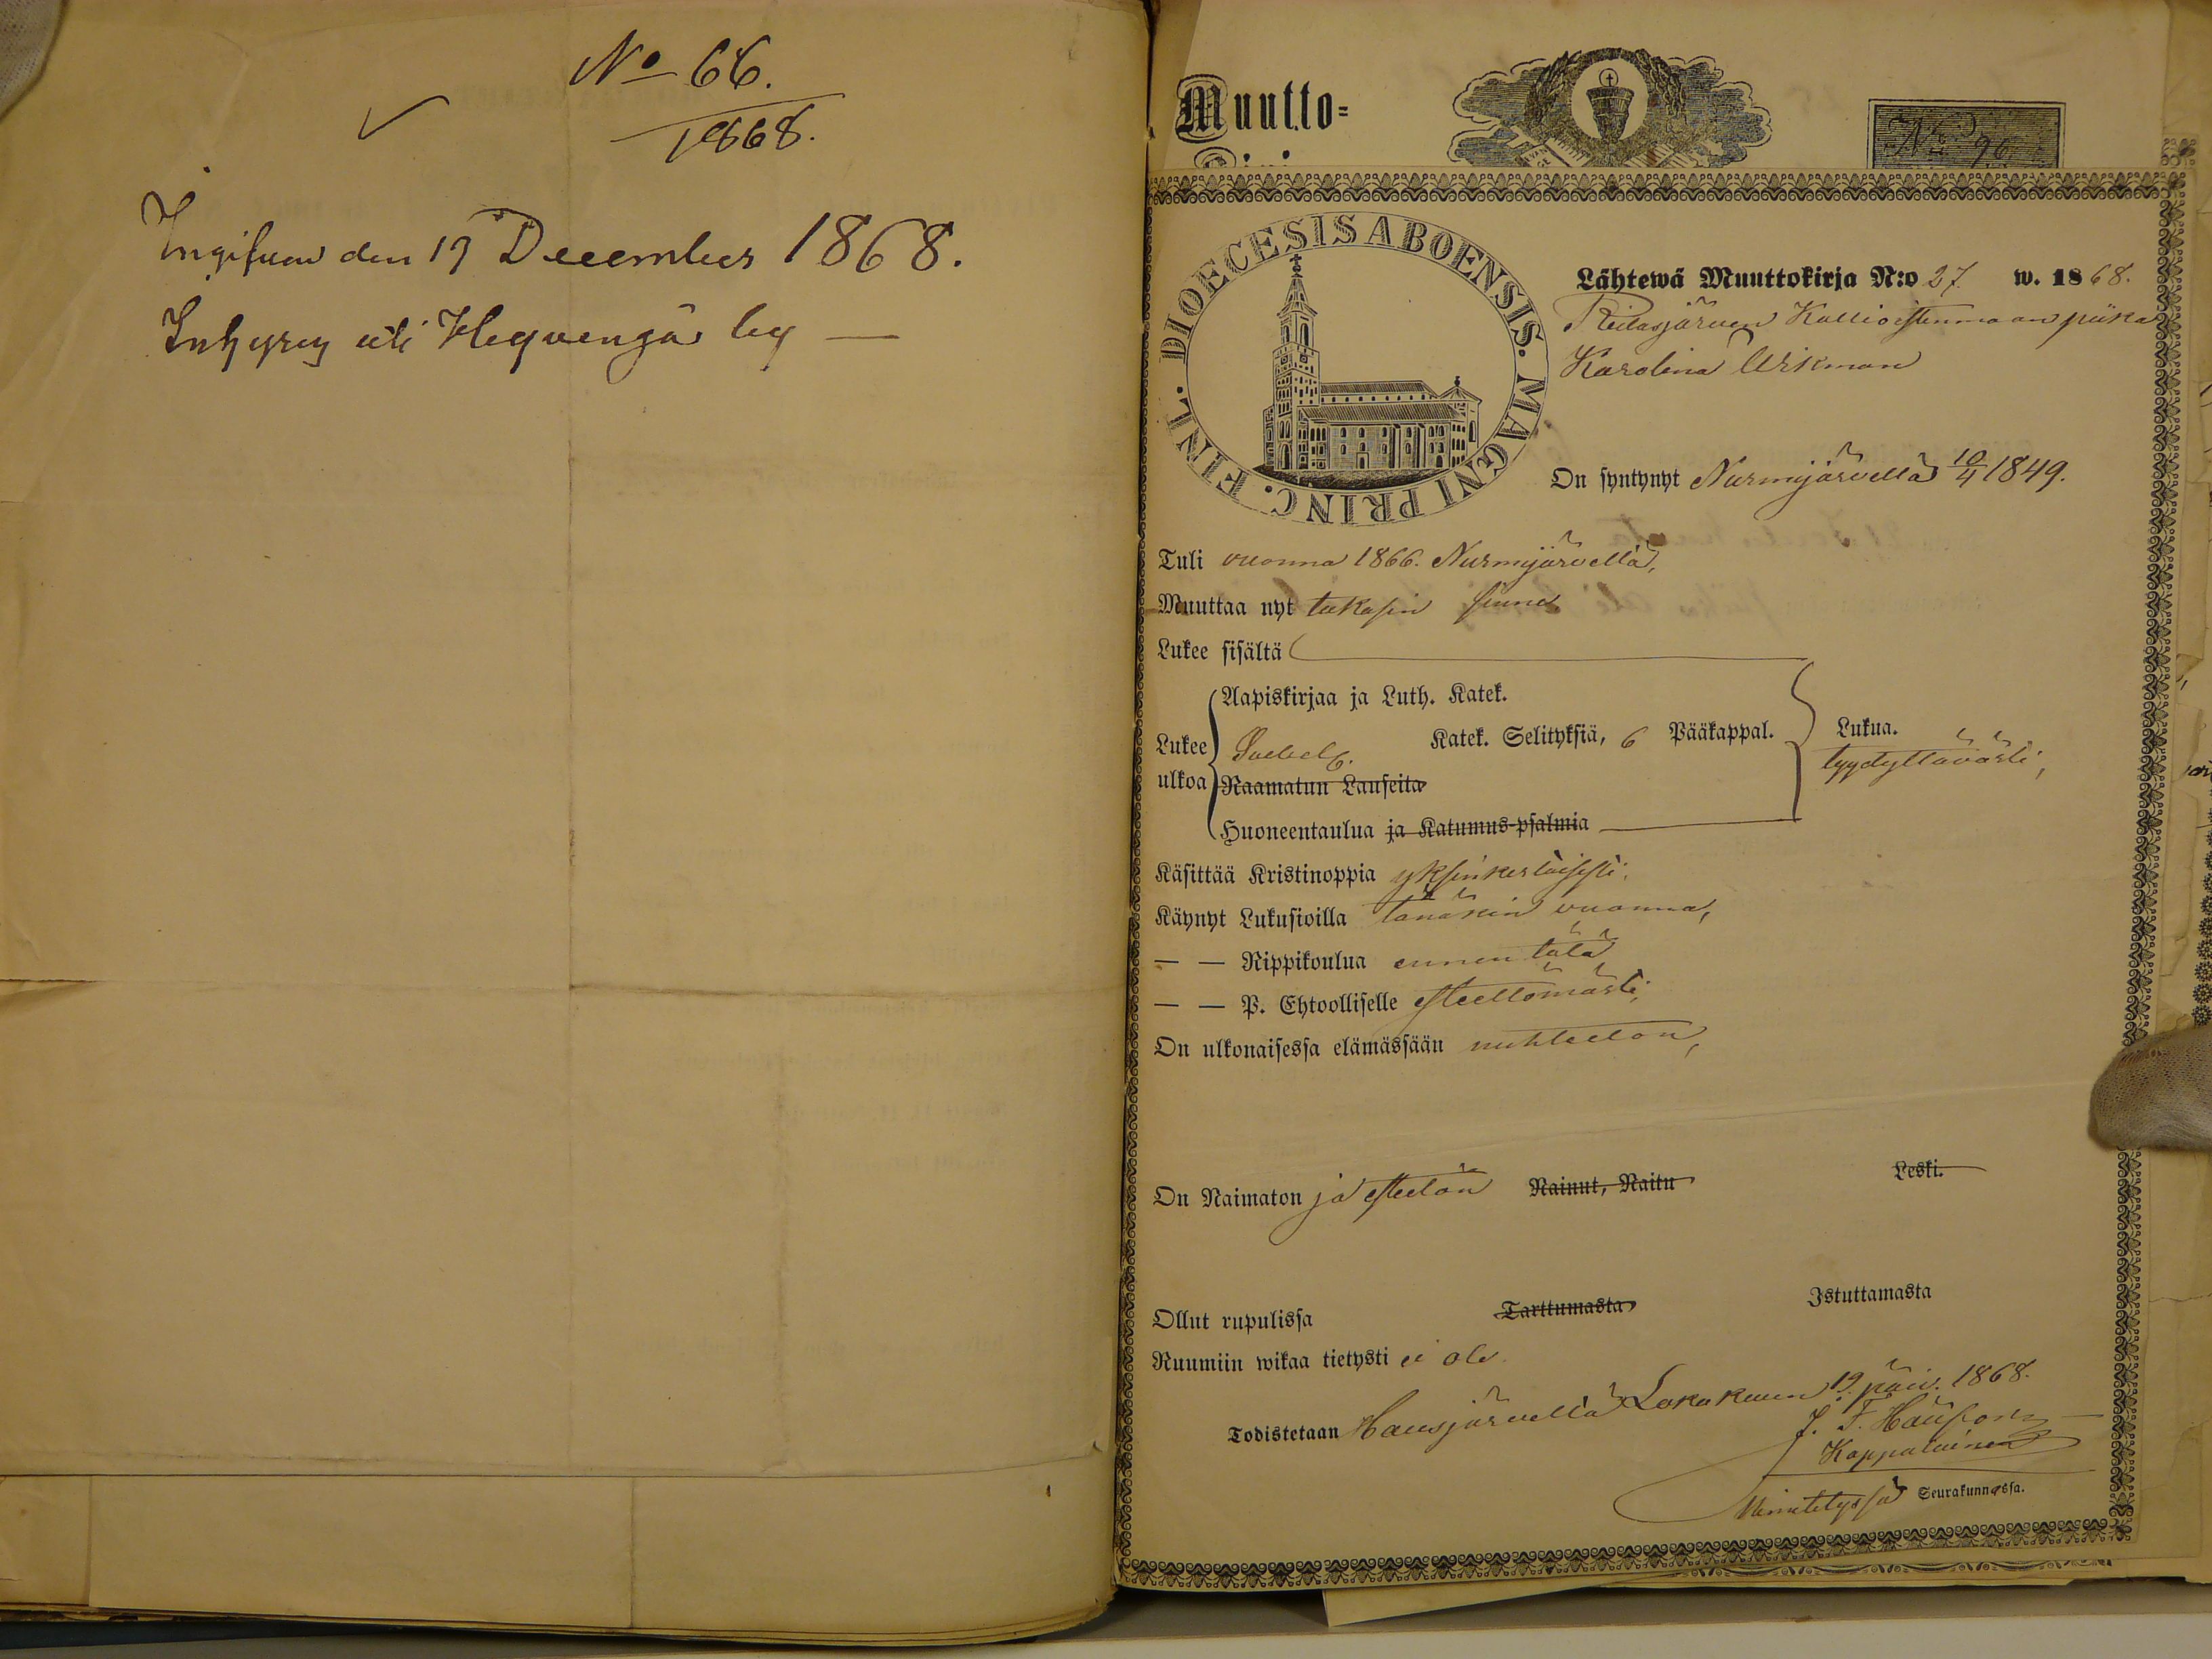 No 66.
1868.
Ingifven den 19 December 1868.
Inhyses uti Hegvengå by —
Muutto=
No 96
DIOECESIS ABOENSIS. MAGNI PRINC. FINL.
Lähtewä Muuttokirja N:o 27 w. 1868.
Ridasjärven Kallioistenmaan piika
Karolina Urkman
On syntynyt Nurmijärvellä 10/4 1849.
Tuli vuonna 1866. Nurmijärveltä,
Muuttaa nyt takasin sinne
Lukee sisältä
Aapiskirjaa ja Luth. Katek.
Lukee ulkoa Svebel. Katek. Selityksiä, 6 Pääkappal.
Lukua.
tyydyttävästi,
Raamatun Lauseita
Huoneentaulua ja Katumus-psalmia
Käsittää Kristinoppia yksinkertaisesti.
Käynyt Lukusioilla tänäkin vuonna,
— — Rippikoulua ennen tätä
— — P. Ehtoolliselle esteettömästi,
On ulkonaisessa elämässään nuhteeton,
On Naimaton ja esteetön Nainut, Naitu Leski.
Ollut rupulissa Tarttumasta Istuttamasta
Ruumiin wikaa tietysti ei ole.
Todistetaan Hausjärvellä Lokakuun 19 päiv. 1868.
J. F.
Kappalainen
Nimitetyssä Seurakunnassa.